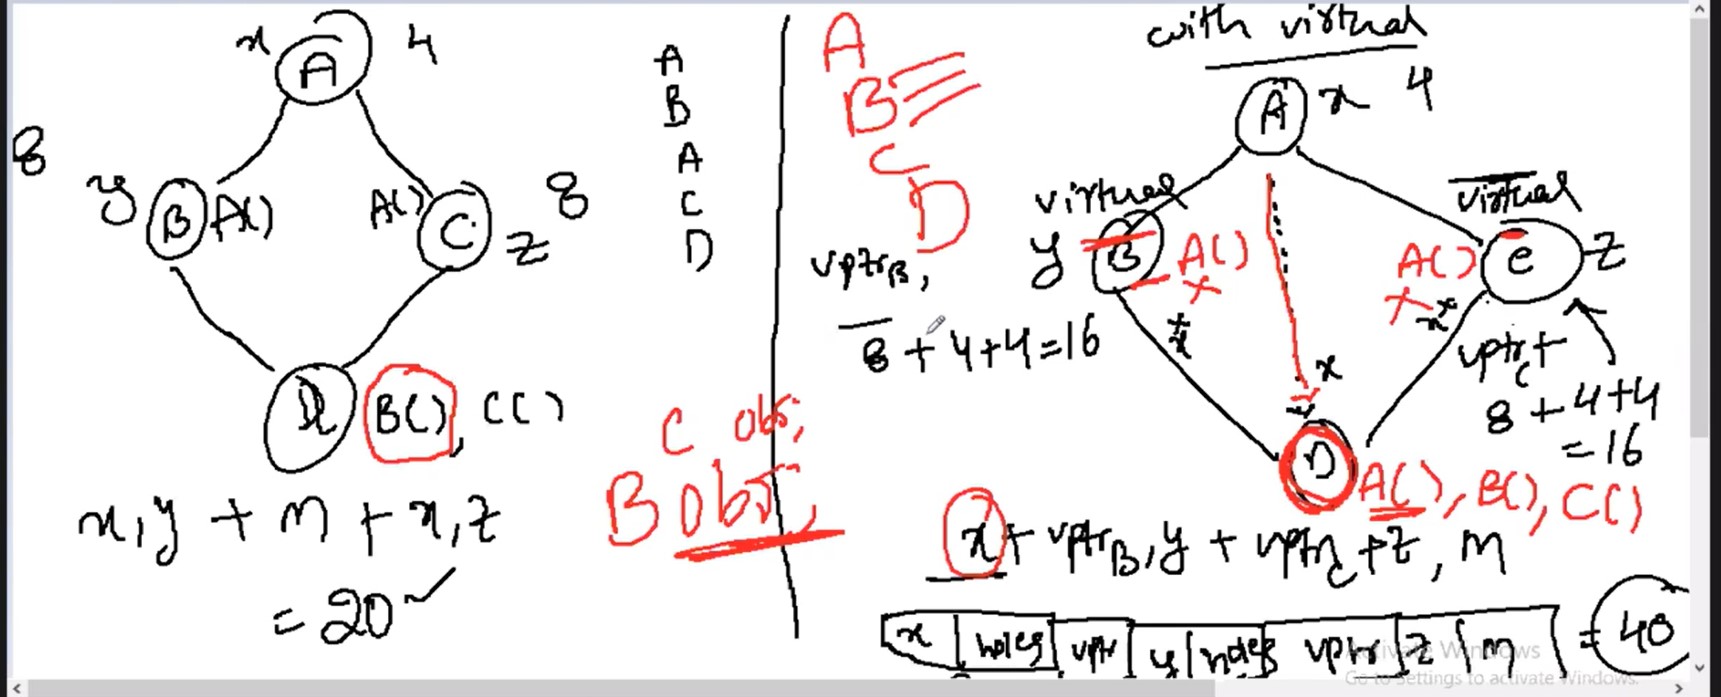 x A 4
8
y B A()
A() C 8
z
D B(), C()
x,y + m + x,z
= 20
A
B
A
C
D
A
B
C
D
C obj;
B obj;
with virtual
A x 4
virtual
virtual
y B A()
A() C z
vptrB,
8 + 4+4=16
x
x
x
vptrC+
8 + 4+4
= 16
D A(), B(), C()
x + vptrB, y + vptrC + z, m
x | holes | vptr | y | holes | vptr | z | m = 40
Activate Windows
Go to Settings to activate Windows.